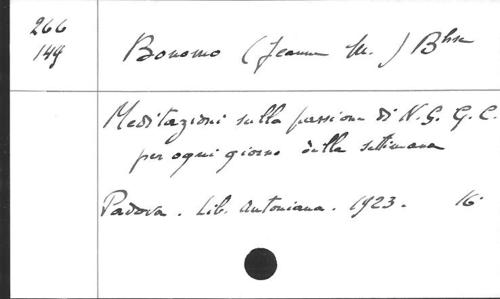 266
149
Bonomo (Jeanne M.) Bhse
Meditazioni sulla passione di N. S. G. C.
per ogni giorno della settimana
Padova. Lib. Antoniana. 1923. 16°